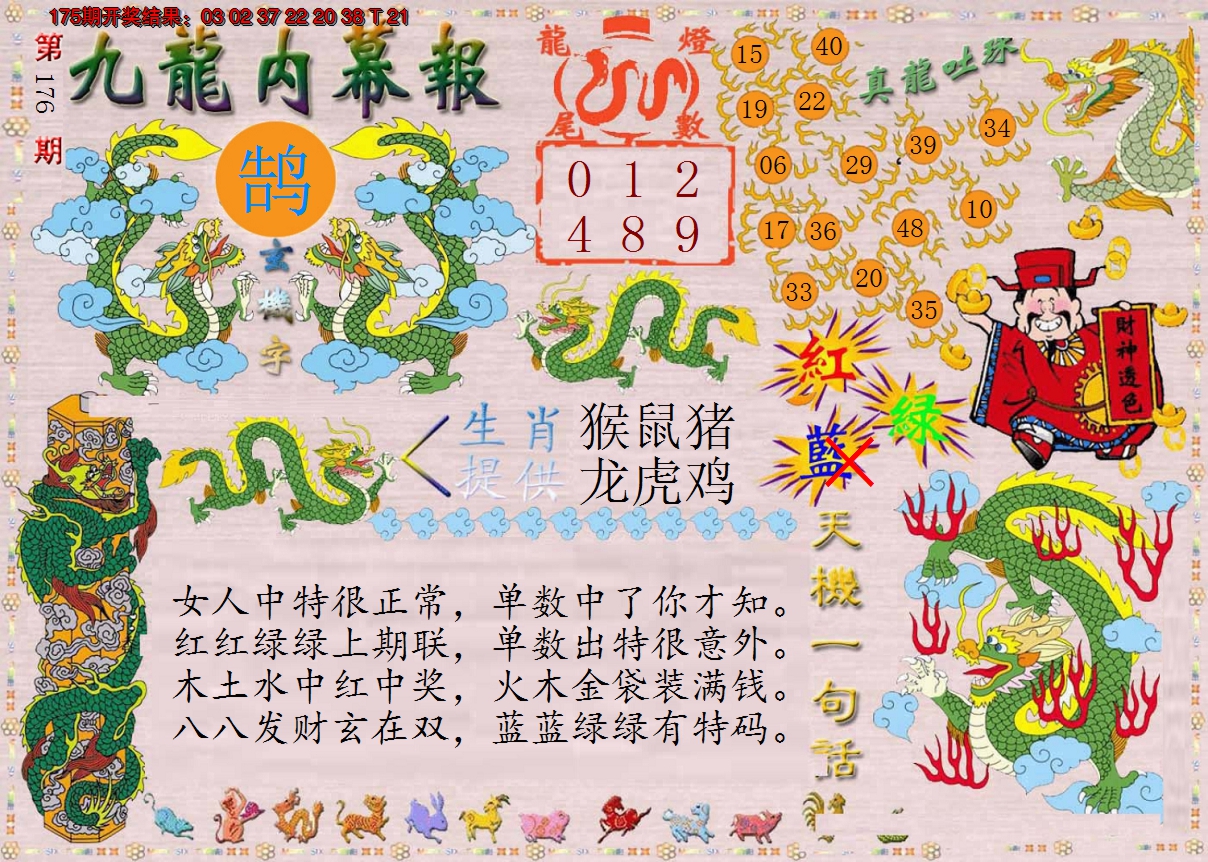 175期开奖结果：03 02 37 22 20 38 T 21
第176期
九龍内幕報
鹄
玄機字
龍燈尾數
0 1 2
4 8 9
真龍吐珠
15 40
19 22
39 34
06 29
17 36 48 10
33 20 35
財神透色
紅
绿
藍
生肖 猴鼠猪
提供 龙虎鸡
天機一句話
女人中特很正常，单数中了你才知。
红红绿绿上期联，单数出特很意外。
木土水中红中奖，火木金袋装满钱。
八八发财玄在双，蓝蓝绿绿有特码。